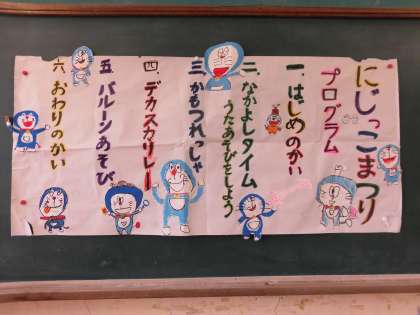 にじっこまつり
プログラム
一、はじめのかい
二、なかよしタイム
うたあそびをしよう
三、かもつれっしゃ
四、デカスカリレー
五、バルーンあそび
六、おわりのかい